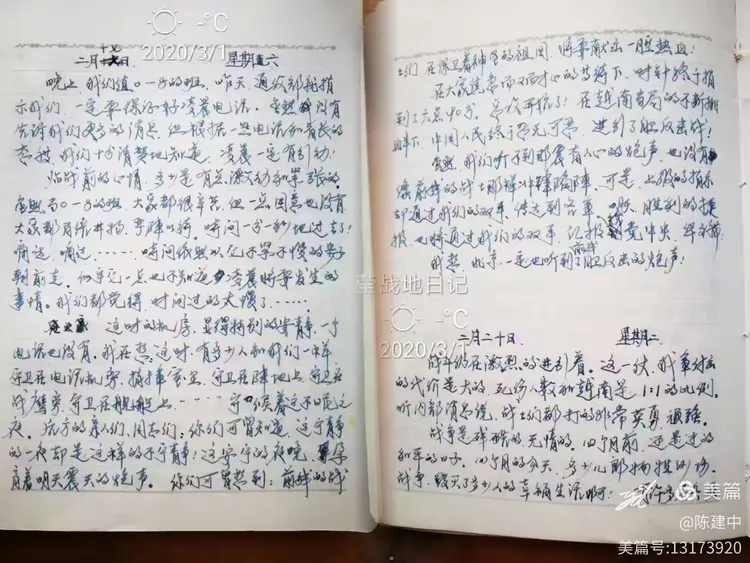 二月十七日 星期六
晚上我们值0—8的班，昨天通信部就指
示我们，一定要保证好凌晨电话。虽然没有
告诉我们更多的消息，但根据一些电话和首长的
我们十分清楚地知道，凌晨一定有行动！
临战前的心情，多少是有点激动和紧张的。
虽然与0—8的班，大家都很辛苦，但一点困意也没有
大家都 时间一分一秒地过去！
嘀达，嘀达……时间依然以它不紧不慢的步子
朝前走。似乎它一点也不知道凌晨将要发生的
事情。我们都觉得时间过的太慢了……
这时的机房，显得特别的安静，一个
电话也没有。我在想，这时，有多少人和我们一样，
守卫在电话机旁，指挥室里，守卫在阵地上，守卫在
战鹰旁，守卫在舰艇上……守候着这不眠之
夜。后方的亲人们、同志们，你们可曾知道，这宁静
的一夜却是这样的不宁静！这宁静的夜晚，
着明天震天的炮声。你们可曾想到：前线的战
士们，在保卫着神圣的祖国，将要献出一腔热血！
在大家焦急而又耐心的等待下，时针终于指
到了六点四十分。总攻开始了！在越南当局的不断挑
衅下，中国人民终于忍无可忍，进行了自卫反击战！
虽然，我们听不到那震奋人心的炮声，也没有
像前线的战士那样冲锋陷阵，可是，上级的指示
却通过我们的双耳，传达到各军 胜利的捷
报也将通过我们的双耳，汇报给党中央，华主席
我想，北京一定也听到了前线自卫反击的炮声！
二月二十日 星期二
战斗仍在激烈的进行着。这一仗，我军付出
的代价是大的，死伤人数和越南是1:1的比例。
听内部消息说，战士们都打的非常英勇、顽强。
战争是残酷的，无情的。四个月前，还是过的
和平的日子，四个月的今天，多少儿郎捐躯沙场。
战争，毁灭了多少人的幸福生活啊！
2020/3/1
-°C
2020/3/1
-°C
战地日记
美篇
@陈建中
美篇号:13173920